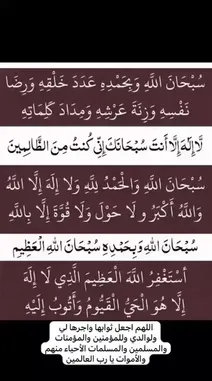 سُبْحَانَ اللَّهِ وَبِحَمْدِهِ عَدَدَ خَلْقِهِ وَرِضَا
نَفْسِهِ وَزِنَةَ عَرْشِهِ وَمِدَادَ كَلِمَاتِهِ
لَّا إِلَٰهَ إِلَّا أَنتَ سُبْحَانَكَ إِنِّي كُنتُ مِنَ الظَّالِمِينَ
سُبْحَانَ اللَّهِ وَالْحَمْدُ لِلَّهِ وَلَا إِلَهَ إِلَّا اللَّهُ
وَاللَّهُ أَكْبَرُ وَلَا حَوْلَ وَلَا قُوَّةَ إِلَّا بِاللَّهِ
سُبْحَانَ اللهِ وَبِحَمْدِهِ سُبْحَانَ اللهِ الْعَظِيمِ
أَسْتَغْفِرُ اللَّهَ الْعَظِيمَ الَّذِي لَا إِلَهَ
إِلَّا هُوَ الْحَيُّ الْقَيُّومُ وَأَتُوبُ إِلَيْهِ
اللهم اجعل ثوابها واجرها لي
ولوالدي وللمؤمنين والمؤمنات
والمسلمين والمسلمات الأحياء منهم
والأموات يا رب العالمين